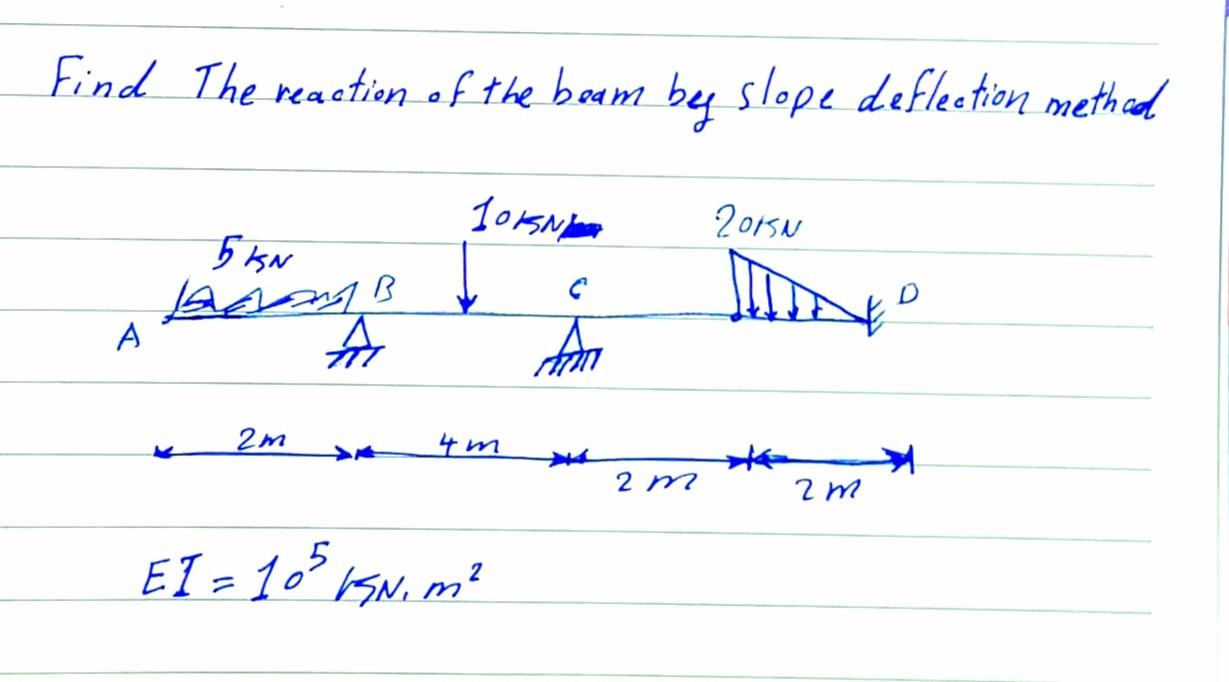 Find The reaction of the beam by slope deflection method
10KN
20KN
5 KN
B
C
D
A
2m
4m
2m
2m
EI = 10⁵ KN.m²